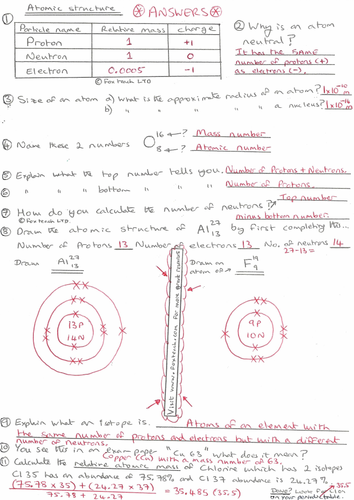 Atomic structure
* ANSWERS *
①
Particle name Relative mass charge
Proton 1 +1
Neutron 1 0
Electron 0.0005 -1
© Foxteach LTD
② Why is an atom
neutral?
It has the SAME
number of protons (+)
as eletrons (-).
③ Size of an atom a) What is the approximate radius of an atom? 1x10⁻¹⁰ m
b) " " " " " " a nucleus? 1x10⁻¹⁴ m
④ Name these 2 numbers O 16 ←? Mass number
8 ←? Atomic number
⑤ Explain what the top number tells you. Number of Protons + Neutrons.
⑥ " " " bottom " " " Number of Protons.
⑦ How do you calculate the number of neutrons? Top number
minus bottom number.
© Foxteach LTD.
⑧ Draw the atomic structure of Al 27 13 by first completing this...
Number of Protons 13 Number of electrons 13 No. of neutrons 14
27-13=
Draw Al 27 13
Draw an
atom of → F 19 9
13P
14N
9P
10N
Visit www.foxteach.com for more great resources
⑨ Explain what an Isotope is. Atoms of an element with
the same number of protons and electrons but with a different
number of neutrons.
⑩ You see this in an exam paper "Cu 63" what does it mean?
Copper (Cu) with a mass number of 63.
⑪ Calculate the relative atomic mass of Chlorine which has 2 isotopes
Cl 35 has an abundance of 75.78% and Cl 37 abundance is 24.27%
(75.78 x 35) + (24.27 x 37)
75.78 + 24.27
= 35.485 (35.5)
on your periodic table